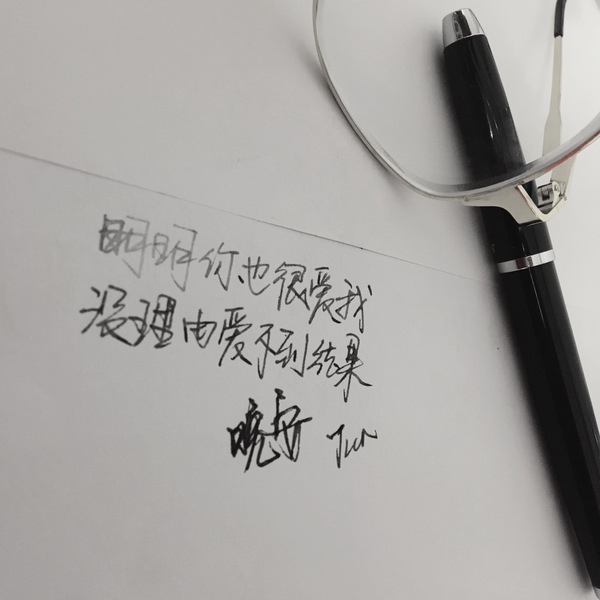 明明你也很爱我
没理由爱不到结果
晚安 Jun